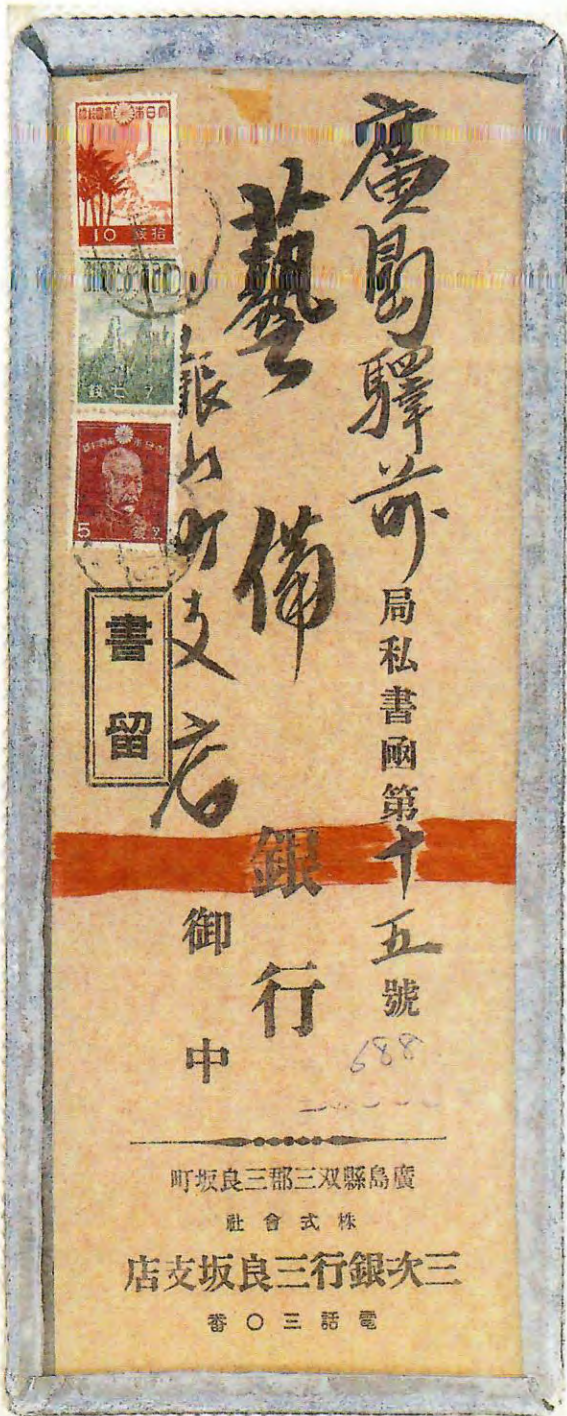 廣島驛前局私書凾第十五號
藝備銀行
銀山町支店御中
書留
688
拾銭 10
七銭
5 銭
廣島縣双三郡三良坂町
株式會社
三次銀行三良坂支店
電話三〇番